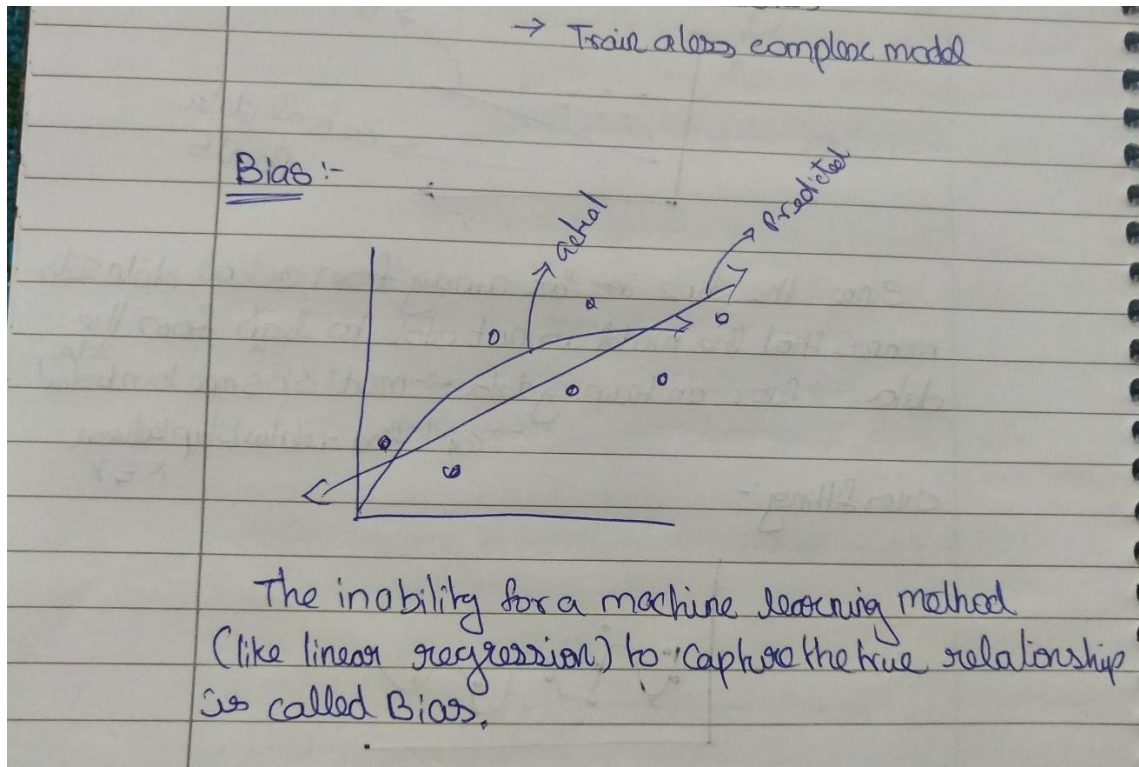 → Train a less complex model
Bias :-
actual
Predicted
The inability for a machine learning method
(like linear regression) to capture the true relationship
is called Bias.